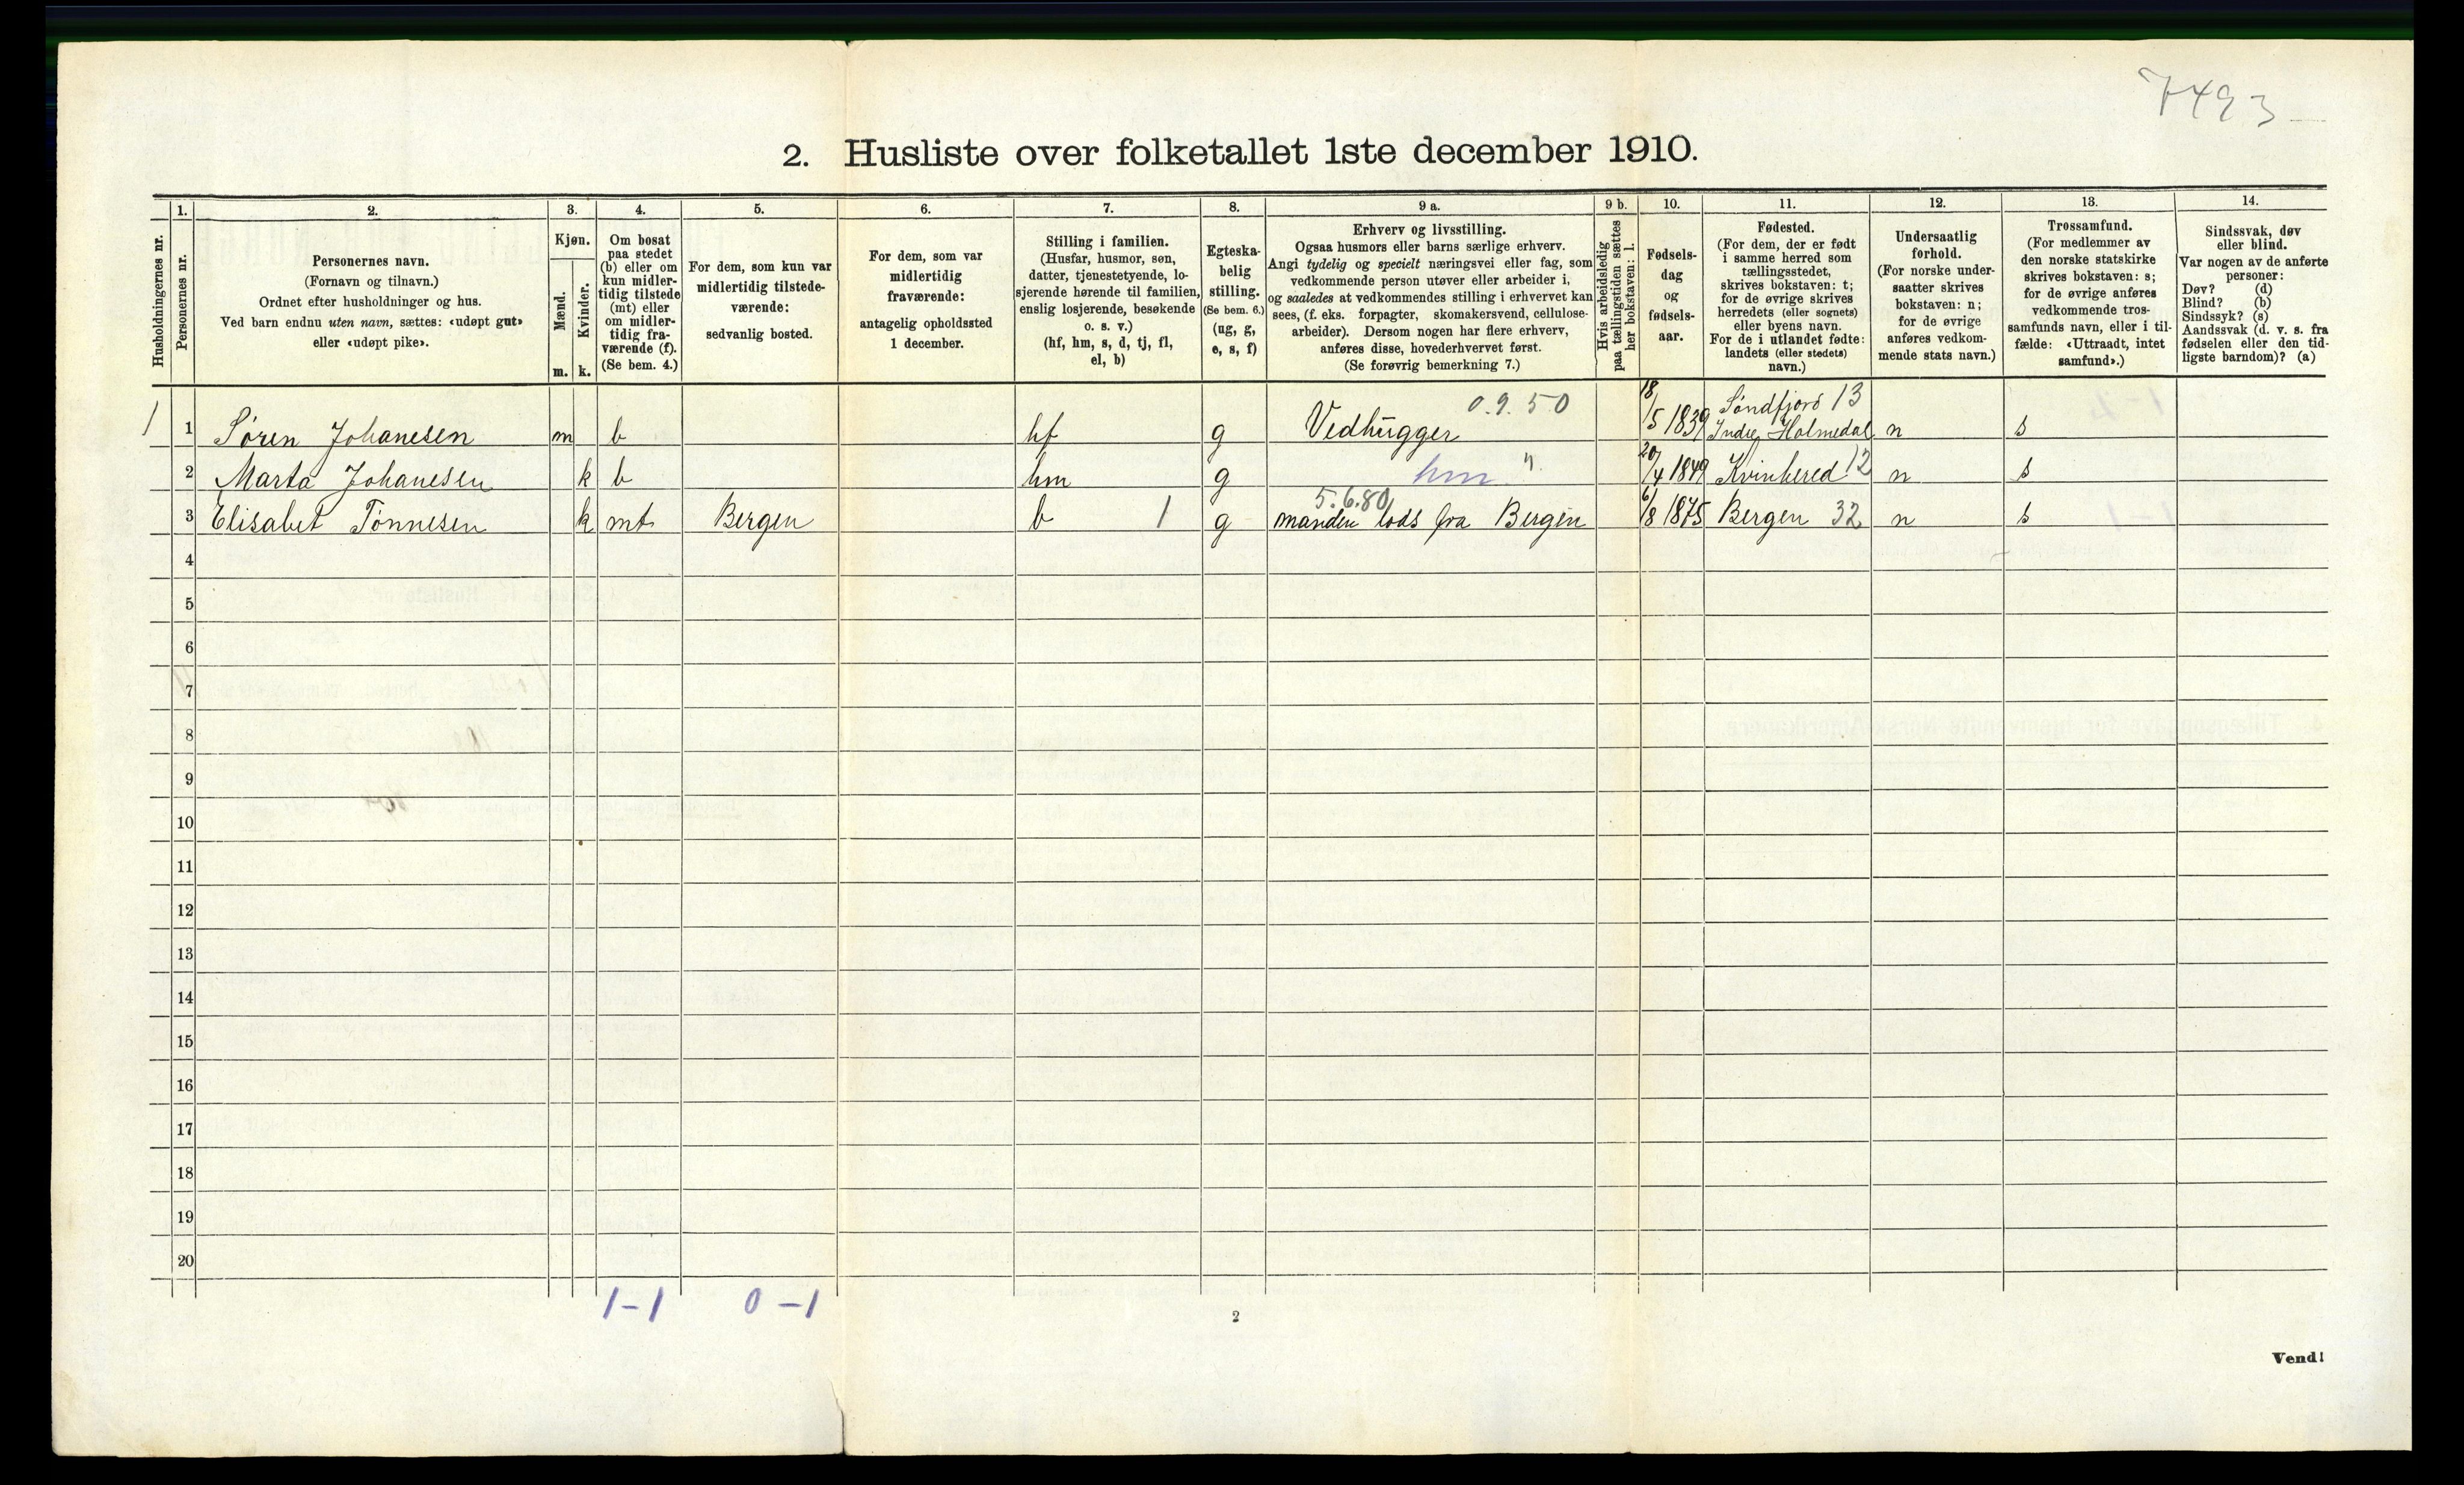 7493
2. Husliste over folketallet 1ste december 1910.
Husholdningernes nr.
1. Personernes nr.
2. Personernes navn. (Fornavn og tilnavn.) Ordnet efter husholdninger og hus. Ved barn endnu uten navn, sættes: «udøpt gut» eller «udøpt pike».
3. Kjøn. Mænd. m. Kvinder. k.
4. Om bosat paa stedet (b) eller om kun midlertidig tilstede (mt) eller om midlertidig fraværende (f). (Se bem. 4.)
5. For dem, som kun var midlertidig tilstedeværende: sedvanlig bosted.
6. For dem, som var midlertidig fraværende: antagelig opholdssted 1 december.
7. Stilling i familien. (Husfar, husmor, søn, datter, tjenestetyende, losjerende hørende til familien, enslig losjerende, besøkende o. s. v.) (hf, hm, s, d, tj, fl, el, b)
8. Egteskabelig stilling. (Se bem. 6.) (ug, g, e, s, f)
9 a. Erhverv og livsstilling. Ogsaa husmors eller barns særlige erhverv. Angi tydelig og specielt næringsvei eller fag, som vedkommende person utøver eller arbeider i, og saaledes at vedkommendes stilling i erhvervet kan sees, (f. eks. forpagter, skomakersvend, cellulosearbeider). Dersom nogen har flere erhverv, anføres disse, hovederhvervet først. (Se forøvrig bemerkning 7.)
9 b. Hvis arbeidsledig paa tællingstiden sættes her bokstaven: l.
10. Fødselsdag og fødselsaar.
11. Fødested. (For dem, der er født i samme herred som tællingsstedet, skrives bokstaven: t; for de øvrige skrives herredets (eller sognets) eller byens navn. For de i utlandet fødte: landets (eller stedets) navn.)
12. Undersaatlig forhold. (For norske undersaatter skrives bokstaven: n; for de øvrige anføres vedkommende stats navn.)
13. Trossamfund. (For medlemmer av den norske statskirke skrives bokstaven: s; for de øvrige anføres vedkommende trossamfunds navn, eller i tilfælde: «Uttraadt, intet samfund».)
14. Sindssvak, døv eller blind. Var nogen av de anførte personer: Døv? (d) Blind? (b) Sindssyk? (s) Aandssvak (d. v. s. fra fødselen eller den tidligste barndom)? (a)
1 1 Søren Johanesen m b hf g Vedhugger 0.9.50 18/5 1839 Søndfjord 13 Indre Holmedal n s
2 Marta Johanesen k b hm g hm " 20/4 1849 Kvinhered 12 n s
3 Elisabet Tønnesen k mt Bergen b 1 g 5.6.80 manden lods fra Bergen 6/8 1875 Bergen 32 n s
4
5
6
7
8
9
10
11
12
13
14
15
16
17
18
19
20
1-1 0-1
2
Vend!